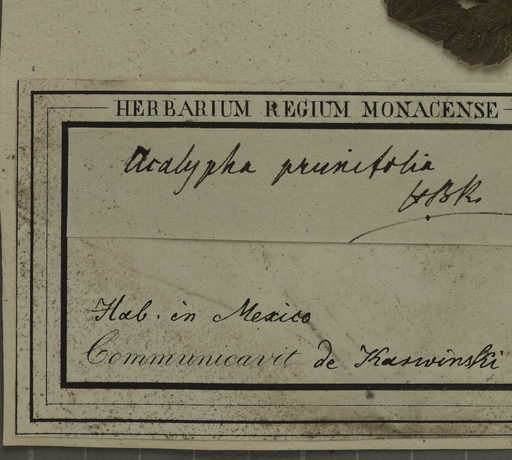 HERBARIUM REGIUM MONACENSE
Acalypha prunifolia
HBK.
Hab. in Mexico
Communicavit de Karwinski